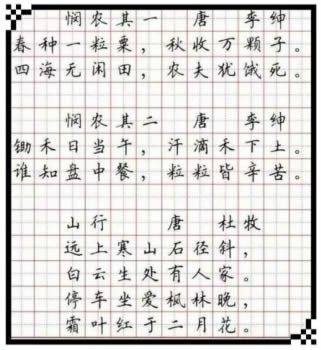 悯农其一 唐 李绅
春种一粒粟，秋收万颗子。
四海无闲田，农夫犹饿死。
悯农其二 唐 李绅
锄禾日当午，汗滴禾下土。
谁知盘中餐，粒粒皆辛苦。
山行 唐 杜牧
远上寒山石径斜，
白云生处有人家。
停车坐爱枫林晚，
霜叶红于二月花。